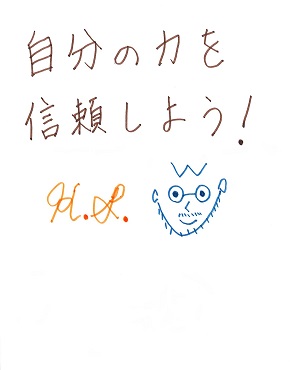 自分の力を
信頼しよう!
H.S.